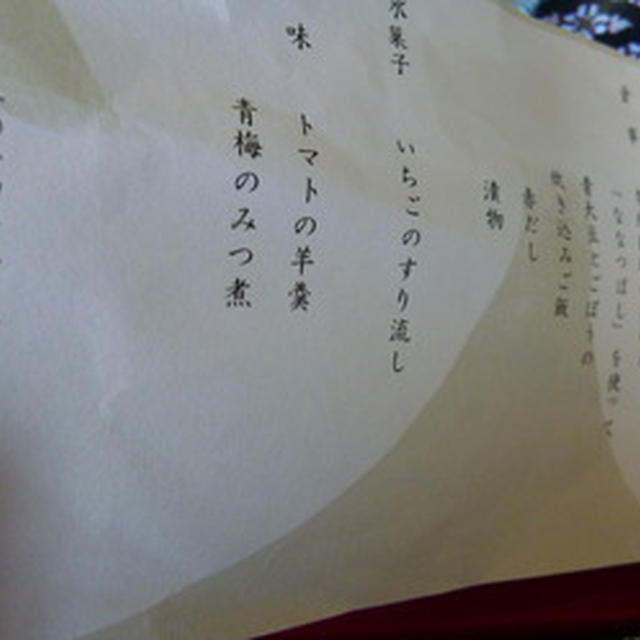 「ななつぼし」を使って
青大豆とごぼうの
炊き込みご飯
赤だし
漬物
水菓子 いちごのすり流し
味 トマトの羊羹
青梅のみつ煮